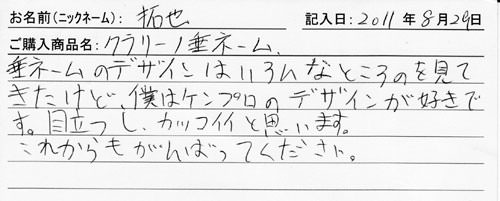 お名前(ニックネーム): 拓也 記入日: 2011 年 8月29日
ご購入商品名: クラリーノ垂ネーム.
垂ネームのデザインはいろんなところのを見て
きたけど、僕はケンプロのデザインが好きで
す。目立つし、カッコイイと思います。
これからもがんばってください。